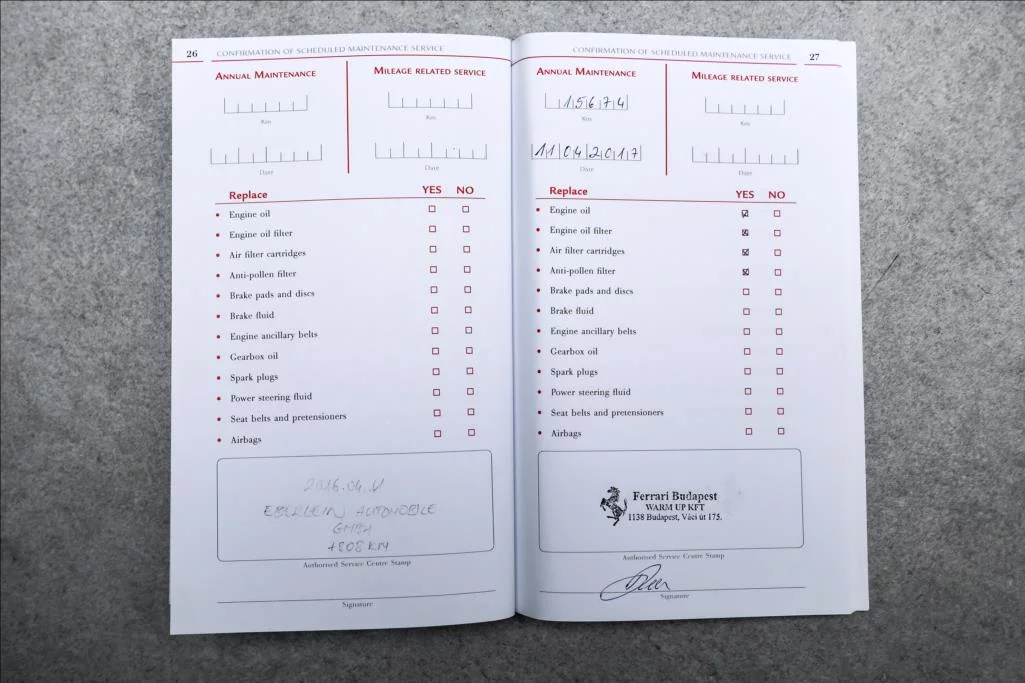 26 CONFIRMATION OF SCHEDULED MAINTENANCE SERVICE
ANNUAL MAINTENANCE MILEAGE RELATED SERVICE
Km Km
Date Date
Replace YES NO
• Engine oil
• Engine oil filter
• Air filter cartridges
• Anti-pollen filter
• Brake pads and discs
• Brake fluid
• Engine ancillary belts
• Gearbox oil
• Spark plugs
• Power steering fluid
• Seat belts and pretensioners
• Airbags
2016.04.
EBERLEIN AUTOMOBILE
GMBH
KM
Authorised Service Centre Stamp
Signature
CONFIRMATION OF SCHEDULED MAINTENANCE SERVICE 27
ANNUAL MAINTENANCE MILEAGE RELATED SERVICE
15674
Km Km
11042017
Date Date
Replace YES NO
• Engine oil
• Engine oil filter
• Air filter cartridges
• Anti-pollen filter
• Brake pads and discs
• Brake fluid
• Engine ancillary belts
• Gearbox oil
• Spark plugs
• Power steering fluid
• Seat belts and pretensioners
• Airbags
Ferrari Budapest
WARM UP KFT
1138 Budapest, Váci út 175.
Authorised Service Centre Stamp
Signature